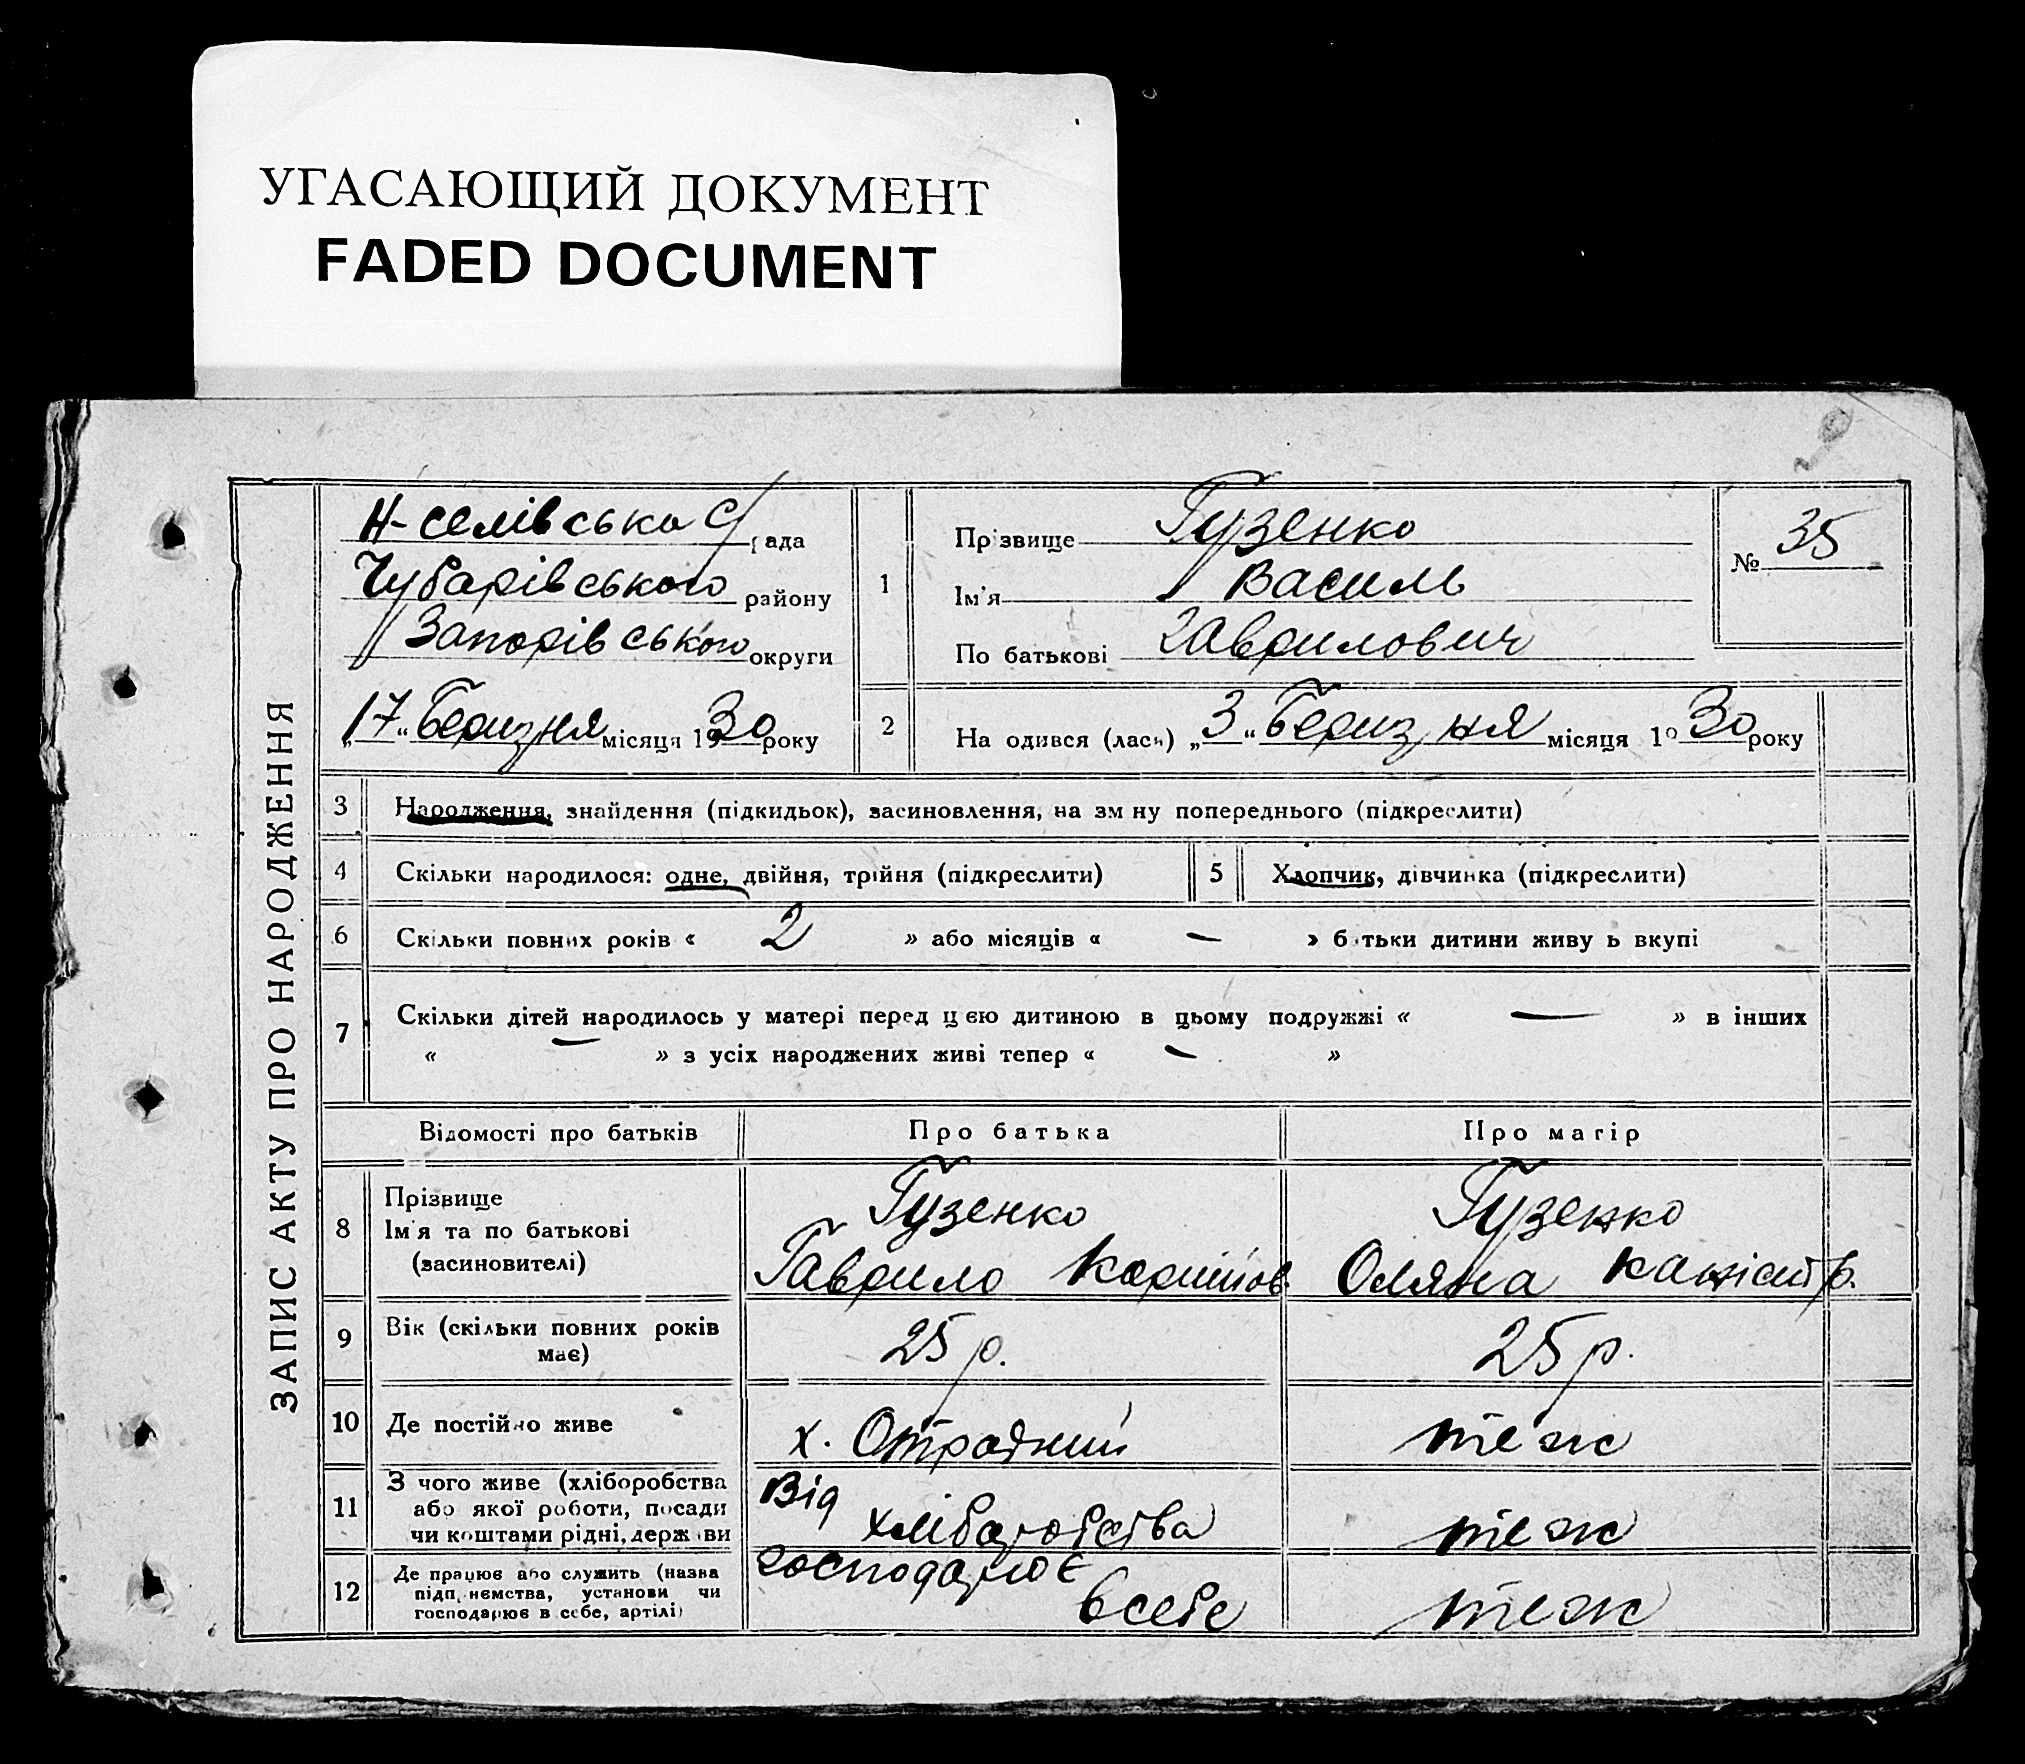 УГАСАЮЩИЙ ДОКУМЕНТ
FADED DOCUMENT
ЗАПИС АКТУ ПРО НАРОДЖЕННЯ
Н-селівська с/рада
Чубарівського району
Запорівського округи
„17“ Беризня місяця 1930 року
1
Прізвище Гузенко
Ім'я Василь
По батькові Гаврилович
№ 35
2
На одився (лась) „3“ Беризня місяця 1930 року
3 Народження, знайдення (підкидьок), засиновлення, на зм ну попереднього (підкреслити)
4 Скільки народилося: одне, двійня, трійня (підкреслити)
5 Хлопчик, дівчинка (підкреслити)
6 Скільки повних років « 2 » або місяців « — » б тьки дитини живу ь вкупі
7 Скільки дітей народилось у матері перед цією дитиною в цьому подружжі « — » в інших
« — » з усіх народжених живі тепер « — »
Відомості про батьків Про батька Про матір
8 Прізвище
Ім'я та по батькові
(засиновителі)
Гузенко
Гаврило
Гузенко
Оляна
9 Вік (скільки повних років
має)
25 р. 25 р.
10 Де постійно живе х. Отрадний теж
11 З чого живе (хліборобства
або якої роботи, посади
чи коштами рідні, держави
Від
хліборобства
теж
12 Де працює або служить (назва
підп иємства, установи чи
господарює в себе, артілі)
господарює
всебе
теж